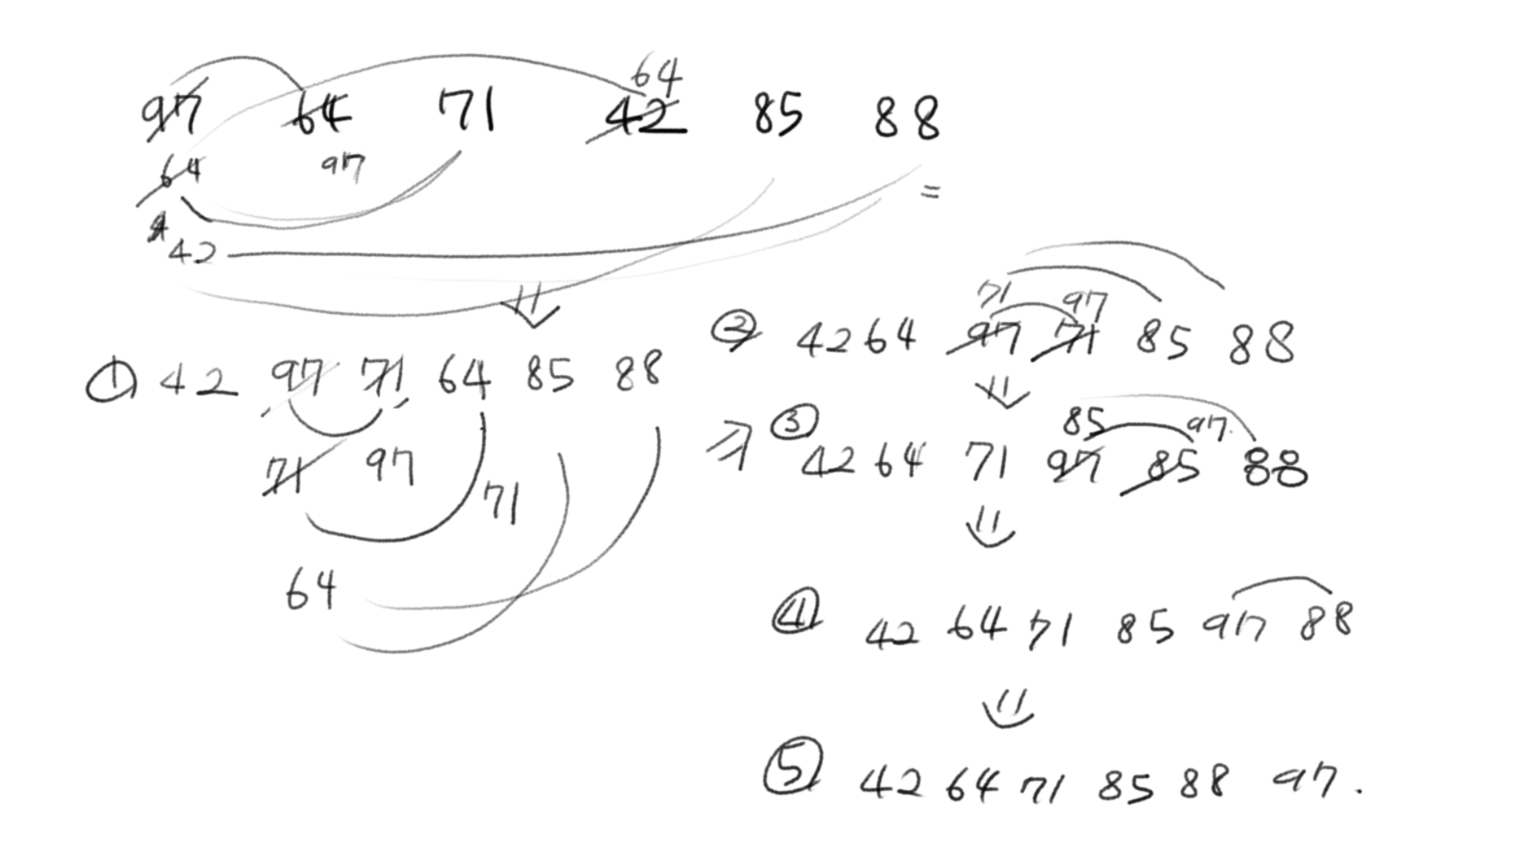 64
97 64 71 42 85 88
64 97
=
42
① 42 97 71 64 85 88
71 97
71
64
71 97
② 42 64 97 71 85 88
85 97.
③ 42 64 71 97 85 88
④ 42 64 71 85 97 88
⑤ 42 64 71 85 88 97.